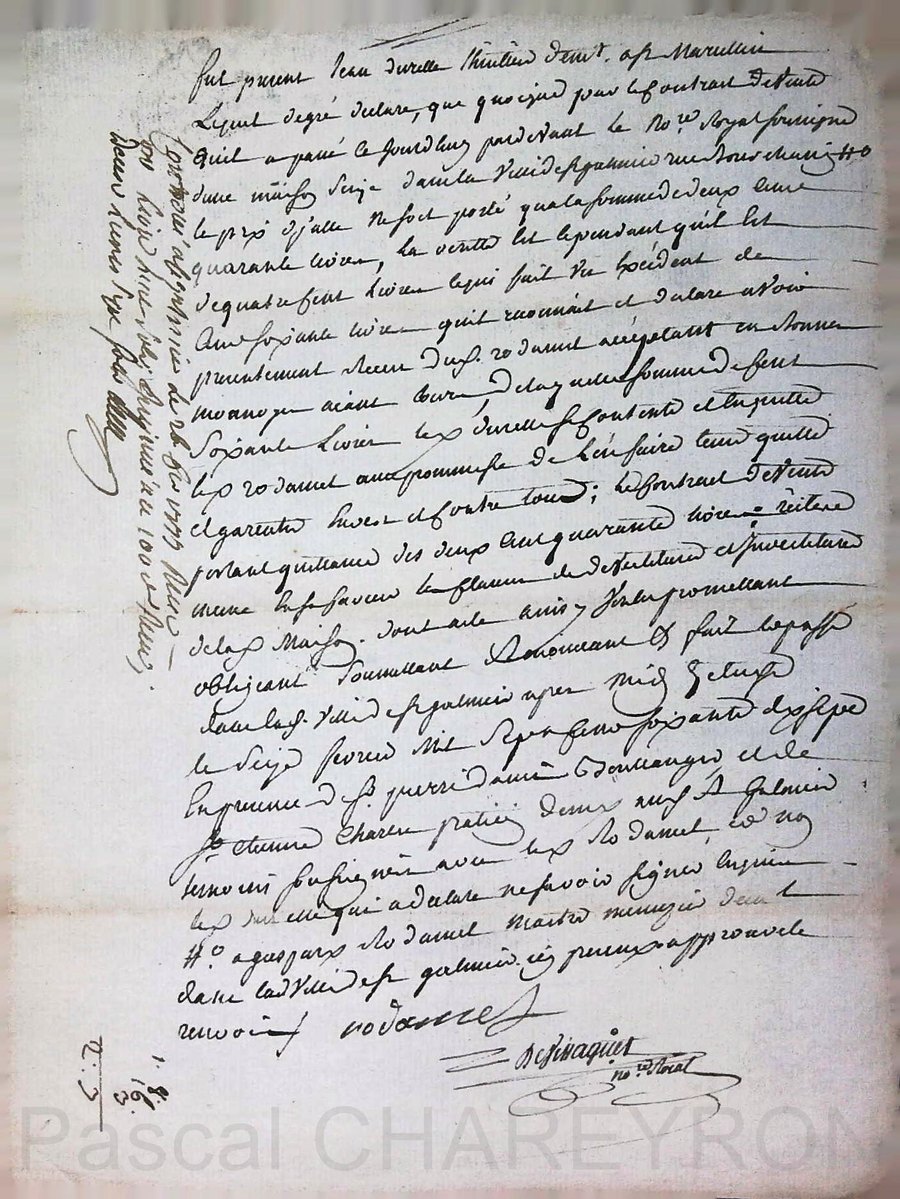 fut present Jean durelle huilier demt. a st Marcellin
Lequel degré declare, que quoique pour le Contrat devente
quil a passé ce Jourdhuy pardevant le Nore Royal soussigné
dune maison size dans la Ville de st galmier rue #o
le prix djcelle ne soit porté qua la somme de deux Cent
quarante livres, la verité est cependant quil est
de quatre Cent Livres ce qui fait un Excédent de
Cent soixante livres quil reconnait et declare avoir
presentement receu dud. rodamel acceptant en bonne
monnoye aiant cours, de laquelle somme de Cent
soixante Livres led durelle se Contente et en quitte
led rodamel avec promesse de L'en faire tenir quitte
et garentir Envers et Contre tous; le Contrat de Vente
portant quittance des deux Cent quarante livres reitere
meme en sa faveur les Clauses de devestiture et Investiture
de lad Maison. dont acte ainsy promettant
obligeant soumettant Renonceant & fait et passé
dans lad. Ville de st galmier apres midy
le seize fevrier Mil sept Cent soixante dix sept
En presence de sr pierre boullanger et de
sr etienne Charles praticien demt aud st Galmier
temoins soussignés avec led Rodamel et non
led durelle qui a declaré ne savoir signer Enquis
#o a gaspard Rodamel Maitre menuzier demt
dans lad Ville de st galmier. icy presents approuvé le
renvoi / rodamel
Devivaquet
nore Roial
Controllé a st galmier le 26 fev 1777 Recu
deux livres
1. 8.
16.
3
2. 3
Pascal CHAREYRON